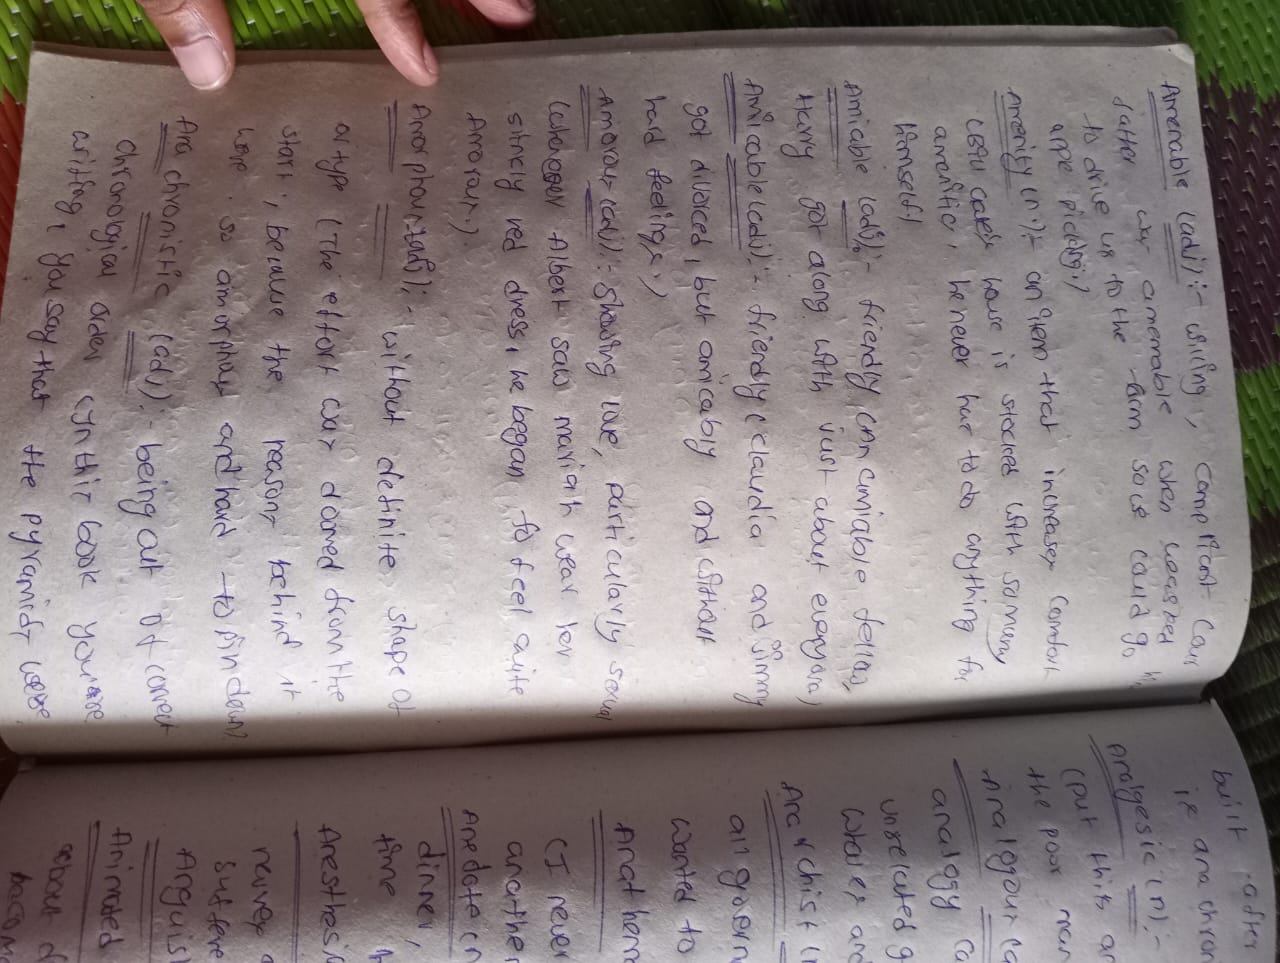 Amenable (adj):- willing, compliant (our
father was amenable when we asked him
to drive us to the farm so we could go
apple picking.)
Amenity (n):- an item that increases comfort
house is stocked with so many
amenities, he never has to do anything for
himself)
Amiable (adj):- friendly (An amiable fellow,
Harry got along with just about everyone)
Amicable (adj):- friendly (claudia and Jimmy
got divorced, but amicably and without
hard feelings.)
Amorous (adj):- showing love, particularly sexual
(whenever Albert saw mariah wear her
slinky red dress, he began to feel quite
Amorous).
Amorphous (adj):- without definite shape or
or type (The effort was doomed from the
start, because the reason behind it
were so amorphous and hard to pin down)
Ana chronistic (adj):- being out of correct
chronological order (In this book you're
writing, you say that the pyramids were
built after
is ana chron
Analgesic (n):-
(put this an
the poor man
Analogous (a
analogy (a
unrelated g
whales and
Anarchist (n
all govern
wanted to
Anathema
(I never
another
Anecdote (n
dinner,
time
Anesthesia
nerves
suffere
Anguish
Animated